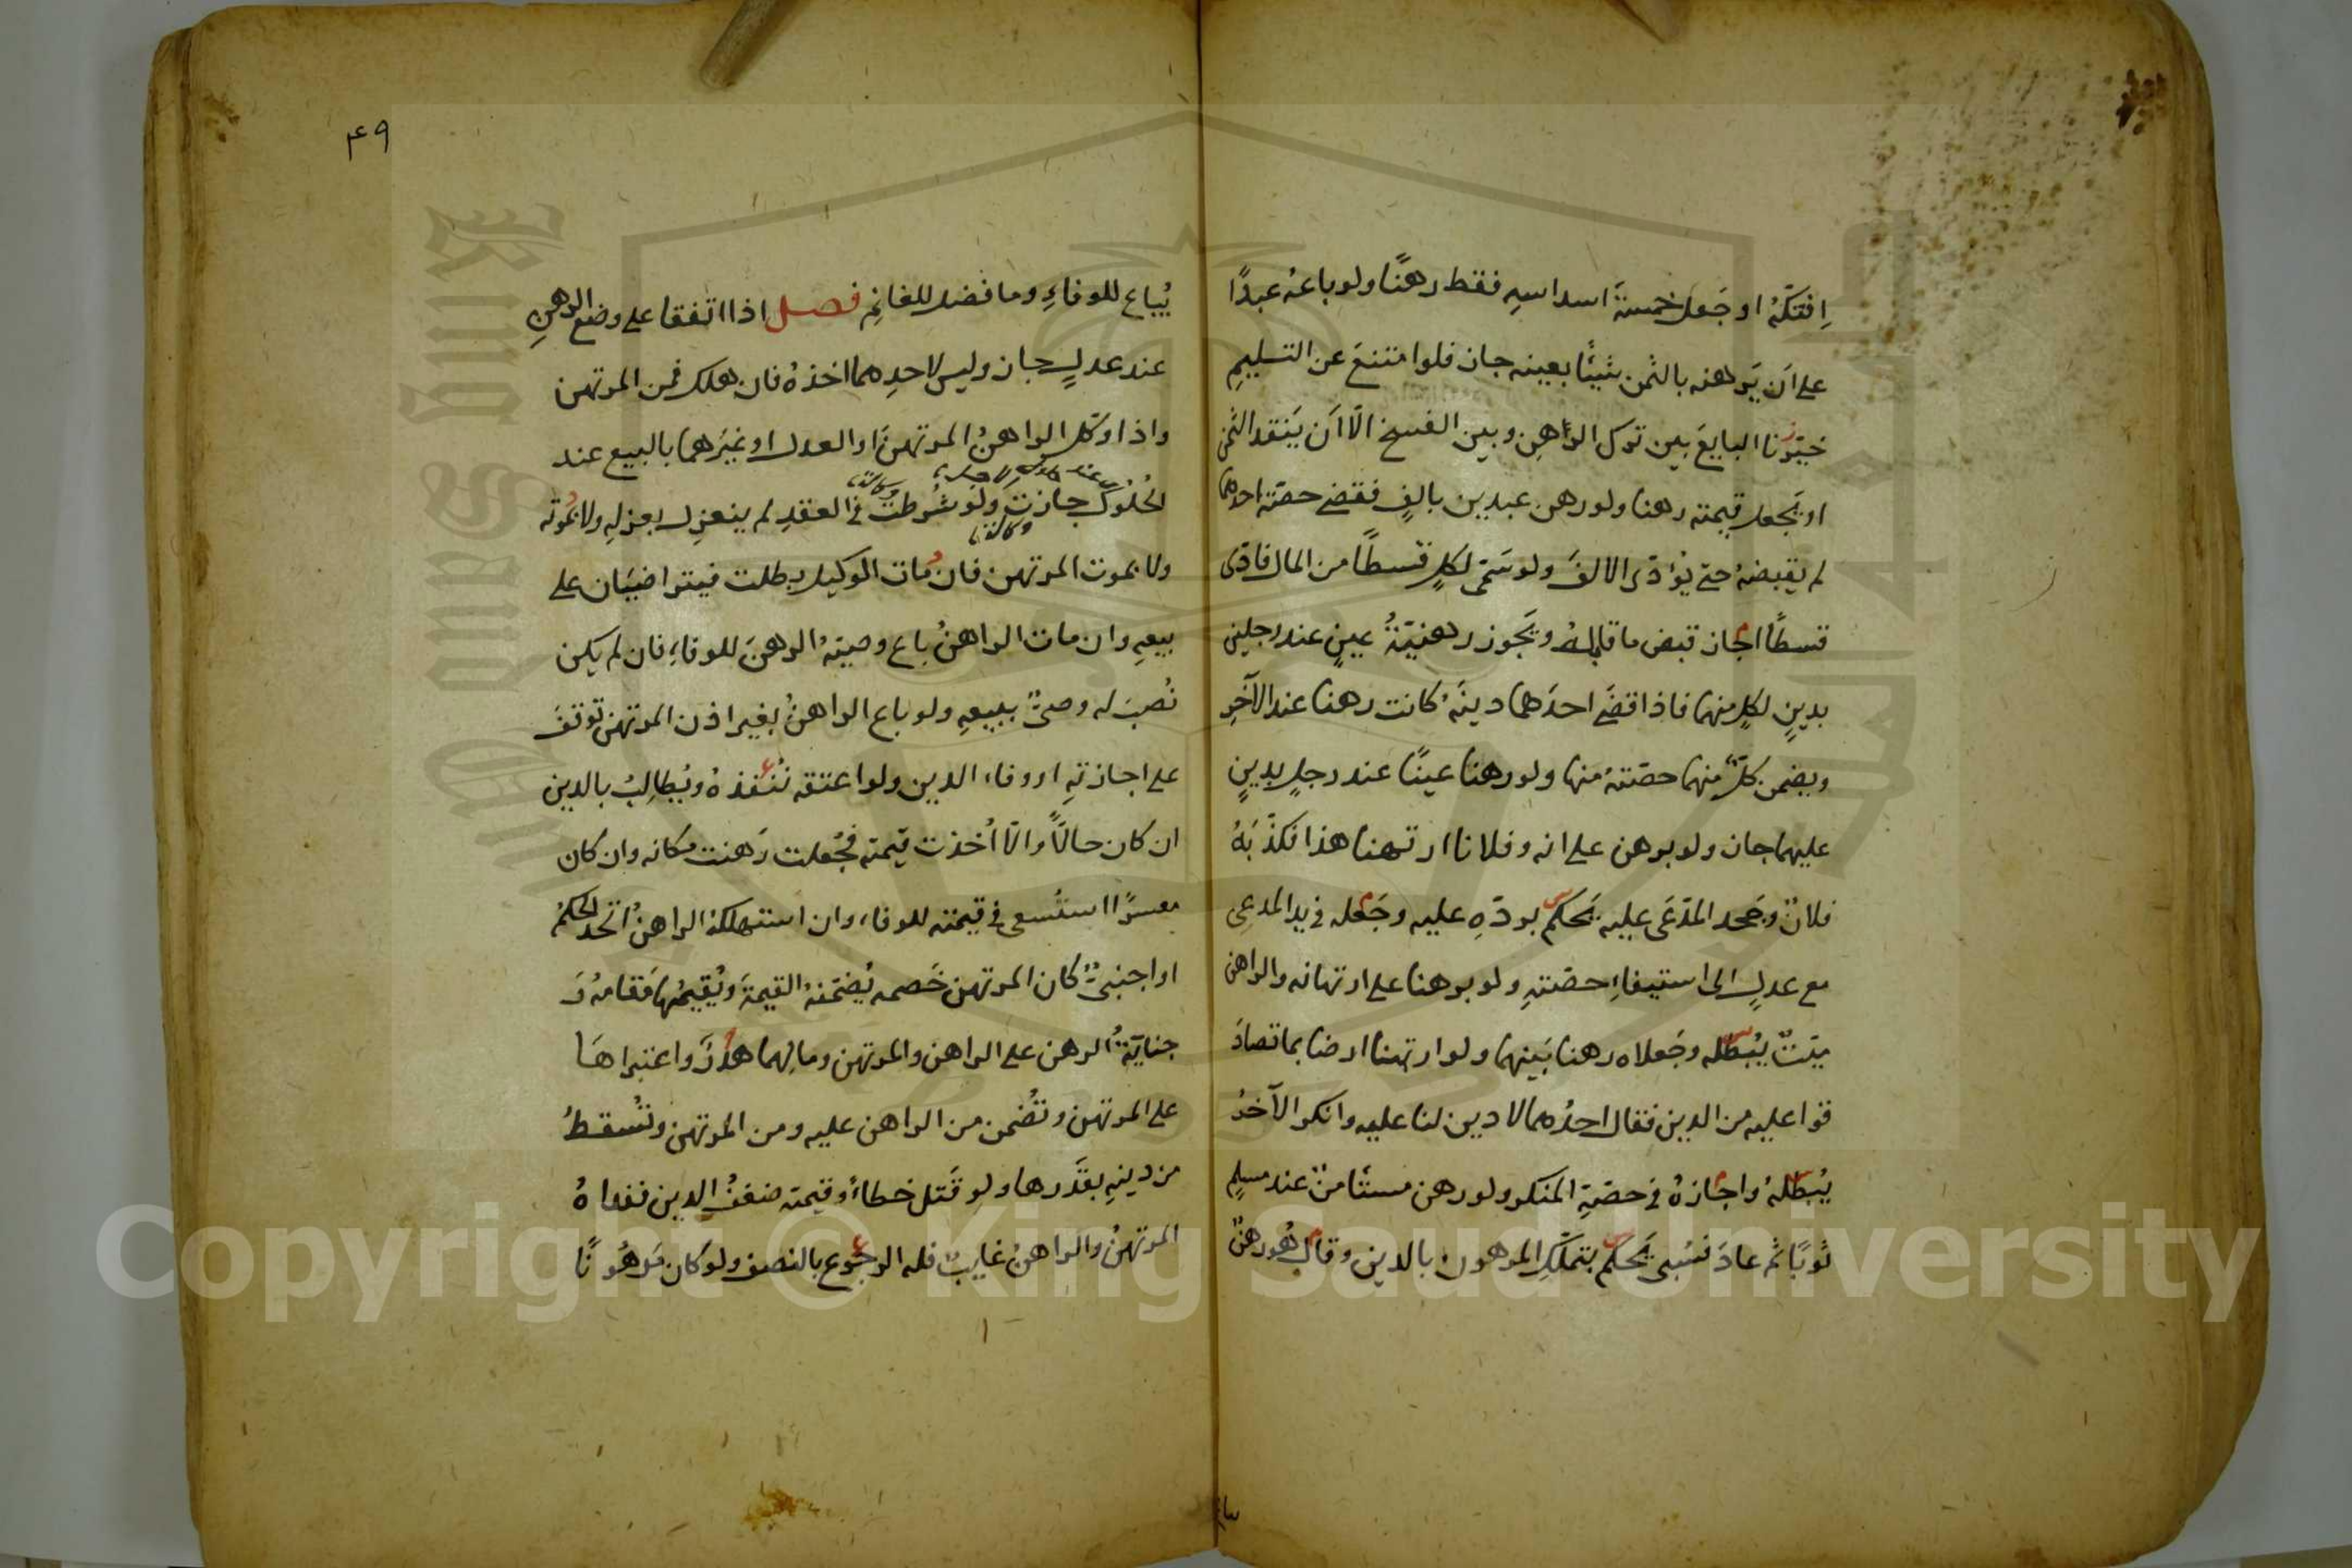 اِفتكّهُ او جَعل خمسةَ اسداسِهِ فقط رهنًا ولو باعَهُ عبدًا
على اَن يَرهنه بالثمن شيئًا بعينه جاز فلو امتنعَ عن التسليمِ
خيّرنا البايعَ بين ترك الرّاهِن وبين الفسخ الّا اَن يَنقد الثمن
او يَجعل قيمته رهنا ولو رهن عبدين بالفٍ فقضى حصّته احدهما
لم يقبضهُ حتى يُؤدّى الالفَ ولو سَمّى لكلٍ قسطًا من المال فادّى
قسطًا اجاز قبض ما قابله ويَجوز رهنيّةُ عينٍ عند رجلين
بدينٍ لكلٍ منهما فاذا قضَى احدَهما دينَهُ كانت رهنا عند الآخرِ
ويضمن كلٌّ منهما حصّتهُ منها ولو رهنا عينًا عند رجلٍ بدينٍ
عليهما جاز ولو برهن على انه وفلانا ارتهنا هذا فكذّبَهُ
فلانٌ وجَحد المدّعَى عليه يَحكم بردّهِ عليه وجَعله فى يد المدعى
مع عدلٍ الى استيفاءِ حصّتهِ ولو برهنا على ارتهانه والراهن
ميّتٌ يُبطله وجَعلاه رهنا بَينهما ولو ارتهنا ارضا بما تصادَ
قوا عليه من الدين فقال احدُهما لا دين لنا عليه وانكر الآخرُ
يُبطلهُ واجازهُ فى حصّةِ المنكر ولو رهن مستأمنٌ عند مسلمٍ
ثوبًا ثم عادَ فسُبى يَحكم بتملّكِ المرهون بالدين وقال هُو رهنٌ
۴۹
يُباع للوفاءِ وما فضل للغانِم فصل اذا اتفقا على وضع الرهنِ
عند عدلٍ جاز وليس لاحدِهما اخذهُ فان هلك فمن المرتهن
واذا وكّل الراهنُ المرتهنَ او العدل او غيرَهما بالبيع عند
الحُلُول جازت ولَو شُرطت فى العقدِ لم ينعزِل بعزلهِ ولا بمَوته
وكالة
ولا بموت المرتهن فان مات الوكيل بطلت فيتراضيَان على
بيعهِ وان مات الراهنُ باع وصيّهُ الرهنَ للوفاءِ فان لم يكن
نُصبَ له وصىٌّ ببيعهِ ولو باع الراهنُ بغير اذن المرتهن توقفَ
على اجازتهِ او وفاء الدين ولو اعتقه نُنفذهُ ويُطالِبُ بالدين
ان كان حالًّا والّا اُخذت قيمته فجُعلت رَهنت مكانه وان كان
معسرًا استُسعى فى قيمته للوفاء وان استهلكهُ الراهنُ اتحد الحكمُ
او اجنبىٌّ كان المرتهن خَصمه يُضمّنهُ القيمةَ ويُقيمُها مَقامهُ وَ
جنايَةُ الرهن على الراهن والمرتهن ومالِهما هدرٌ واعتبراهَا
على المرتهن وتُضمن من الراهن عليه ومن المرتهن وتُسقطُ
من دينهِ بقَدرها ولو قَتل خطاءً وقيمته ضعفُ الدين ففداهُ
المرتهنُ والراهنُ غايبٌ فله الرجوع بالنصف ولو كان مَرهُونًا